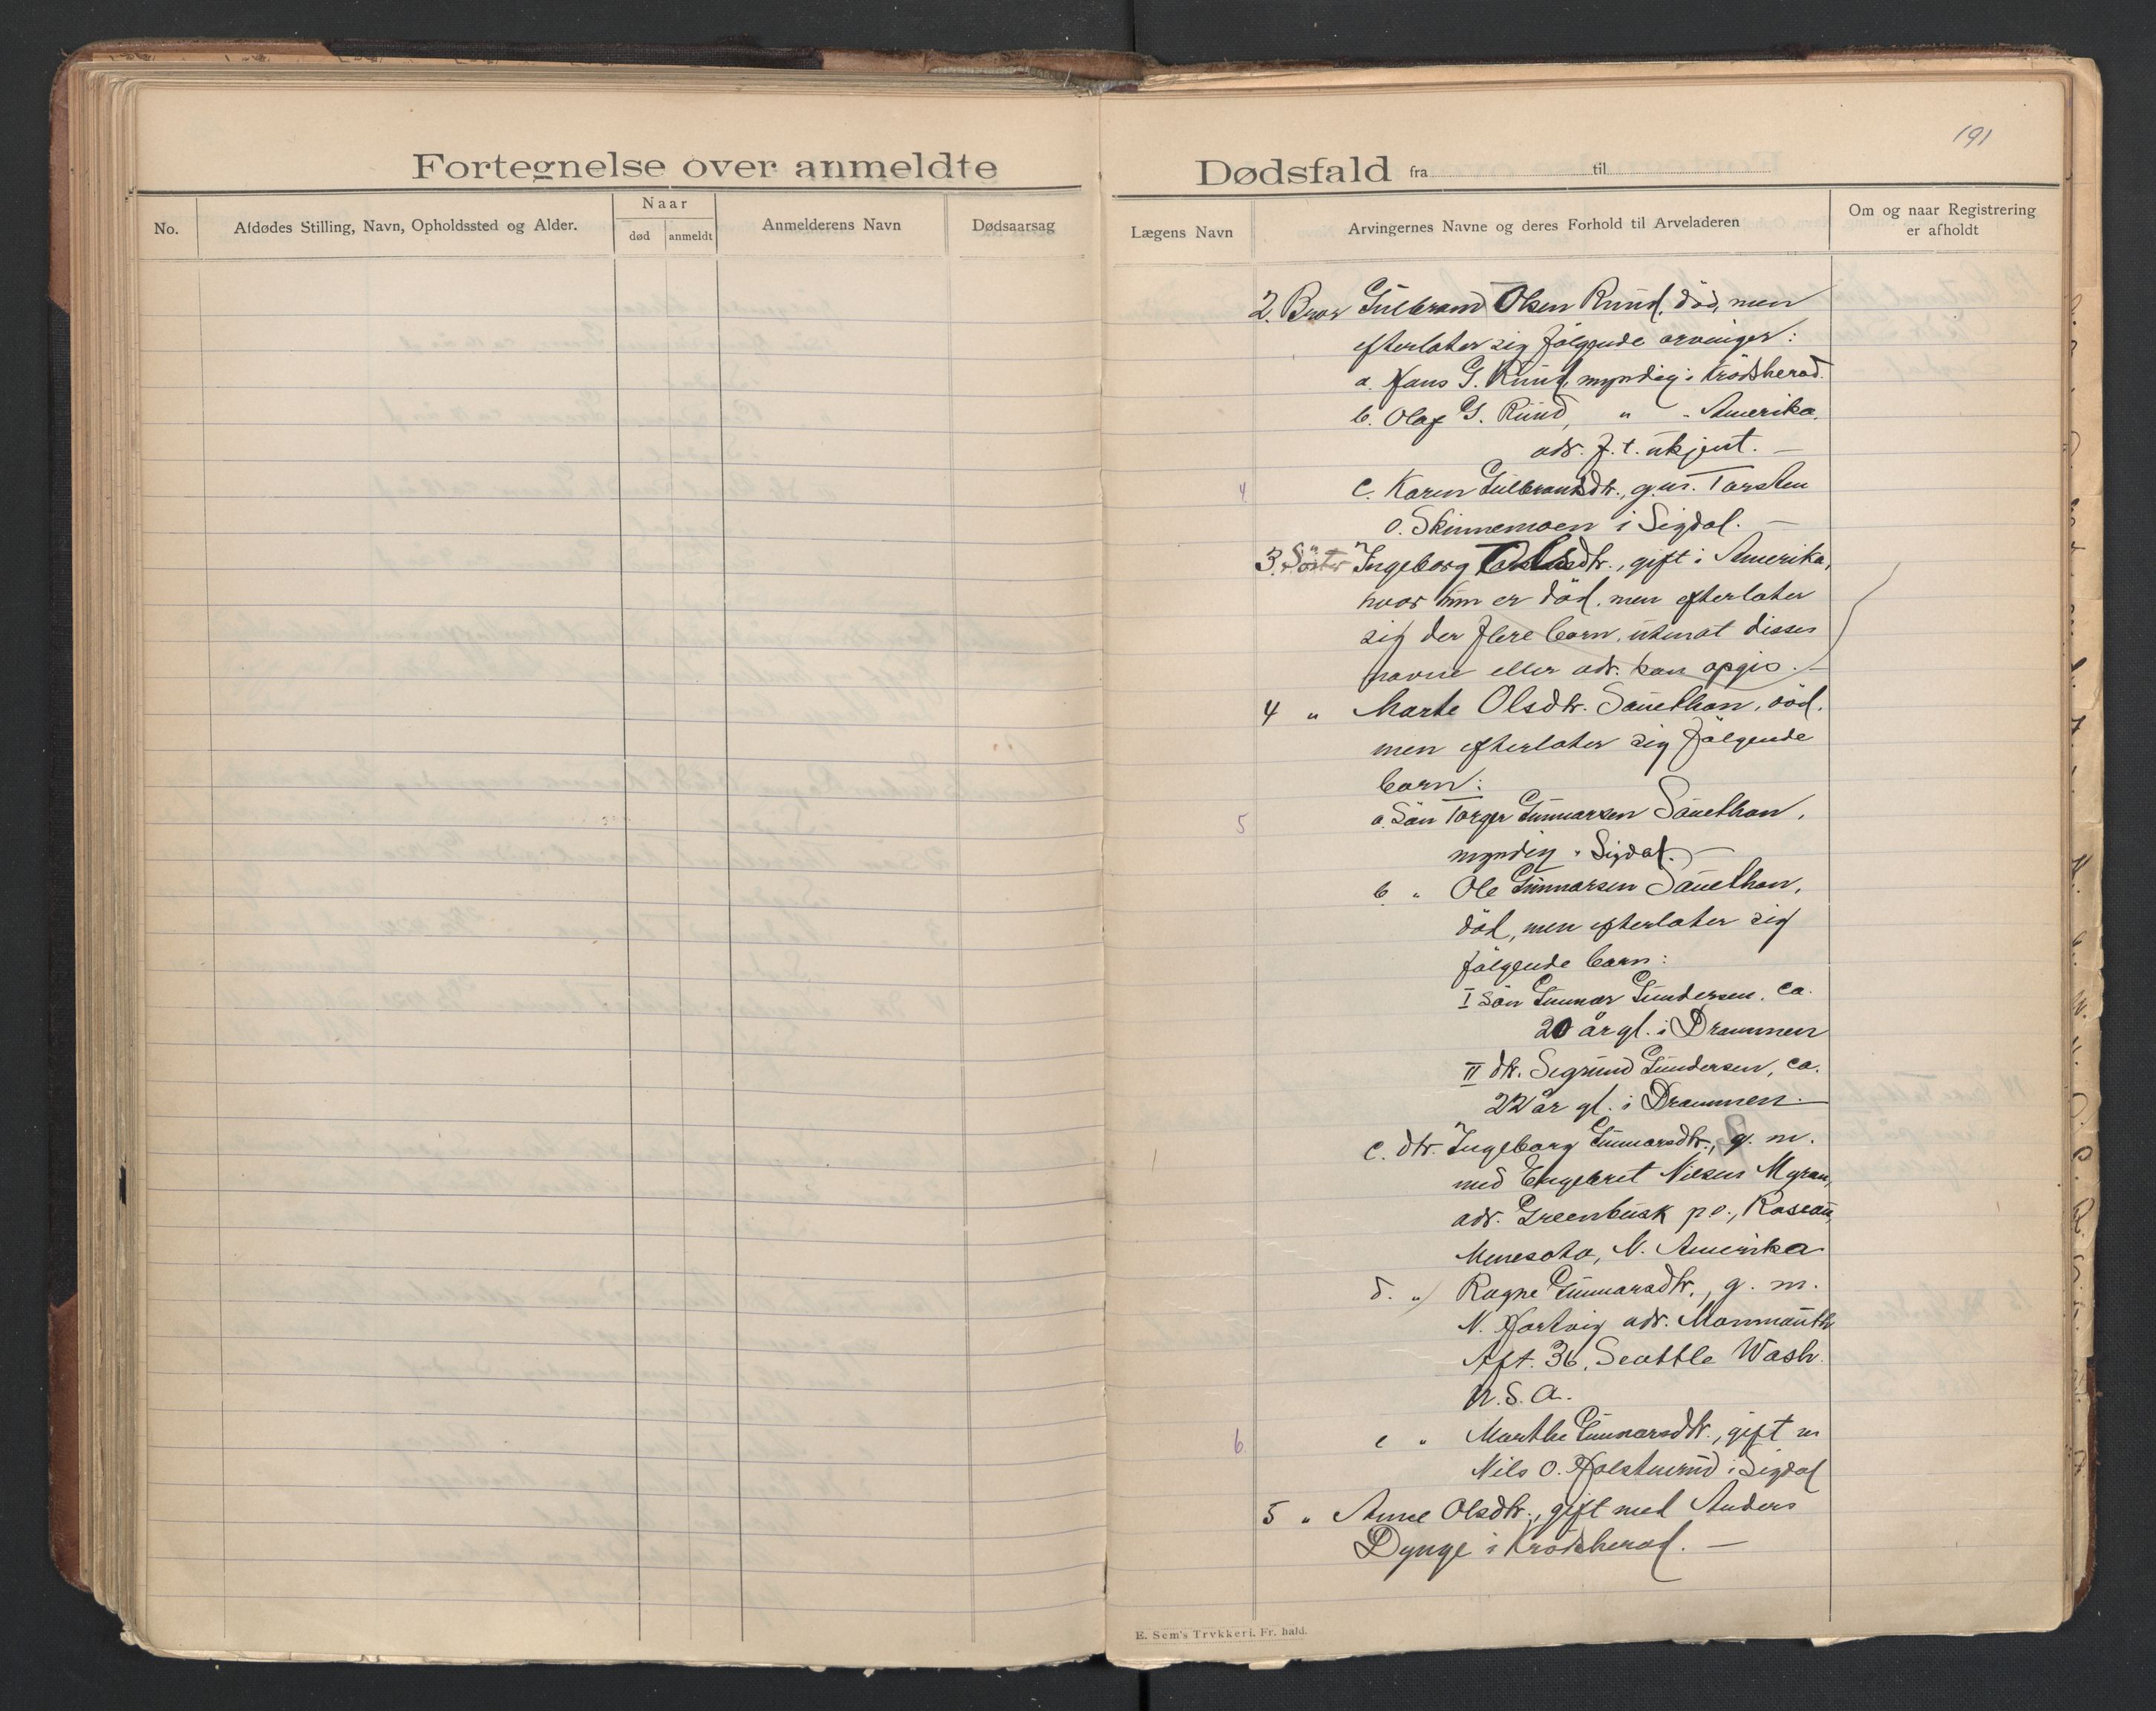 191
Fortegnelse over anmeldte Dødsfald fra til
No.
Afdødes Stilling, Navn, Opholdssted og Alder.
Naar
død
anmeldt
Anmelderens Navn
Dødsaarsag
Lægens Navn
Arvingernes Navne og deres Forhold til Arveladeren
Om og naar Registrering
er afholdt
2. Bror Gulbrand Olsen Ruud, död, men
efterlater sig fölgende arvinger:
a. Hans G. Ruud, myndig i Krödsherad.
b. Olaf G. Ruud, " - Amerika,
adr. f. t. ukjent. —
4
c. Karen Gulbrandsdtr., g. m. Torsten
O. Skinnemoen i Sigdal. —
3. Söster Ingeborg Olsdtr., gift i Amerika,
hvor hun er död, men efterlater
sig der flere barn, uten at disses
navne eller adr. kan opgis. —
4 " Marte Olsdtr. Sönethon, död,
men efterlater sig fölgende
barn:
5
a. Sön Torger Gunnarsen Sönethon,
myndig i Sigdal. —
b. " Ole Gunnarsen Sönethon,
död, men efterlater sig
fölgende barn:
I Sön Gunnar Gundersen, ca.
20 år gl. i Drammen
II dtr. Sigrund Gundersen, ca.
22 år gl. i Drammen. —
c. dtr. Ingeborg Gunnarsdtr., g. m.
med Engebret Nilsen Myran,
adr. Greenbusk p.o., Roseau,
Menesota, N. Amerika
d. " Ragne Gunnarsdtr., g. m.
N. Hartvig adr. Monmauth
Apt. 36, Seattle Wash.
U. S. A.
6
e " Marthe Gunnarsdtr., gift m
Nils O. Holstuerud i Sigdal
5 " Anne Olsdtr., gift med Anders
Dynge i Krödsherad. —
E. Sem's Trykkeri. Fr. hald.